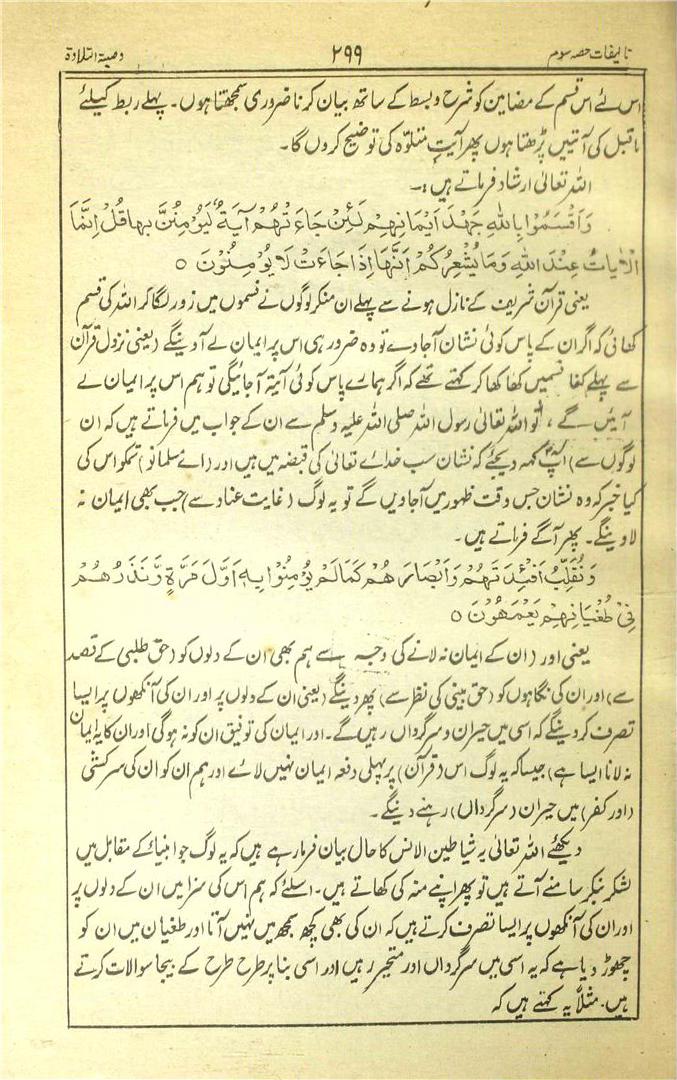 تالیفات حصہ سوم ۲۹۹ وصیۃ التلاوۃ
اس لئے اس قسم کے مضامین کو شرح و بسط کے ساتھ بیان کرنا ضروری سمجھتا ہوں۔ پہلے ربط کیلئے
ماقبل کی آیتیں پڑھتا ہوں پھر آیت متلوّہ کی توضیح کروں گا۔
اللہ تعالیٰ ارشاد فرماتے ہیں :۔
وَاَقْسَمُوْا بِاللّٰهِ جَهْدَ اَيْمَانِهِمْ لَئِنْ جَاءَتْهُمْ آيَةٌ لَيُؤْمِنُنَّ بِهَا قُلْ اِنَّمَا
الْاٰيَاتُ عِنْدَ اللّٰهِ وَمَا يُشْعِرُكُمْ اَنَّهَا اِذَا جَاءَتْ لَا يُؤْمِنُوْنَ ○
یعنی قرآن شریف کے نازل ہونے سے پہلے ان منکر لوگوں نے قسموں میں زور لگا کر اللہ کی قسم
کھائی کہ اگر ان کے پاس کوئی نشان آجاوے تو وہ ضرور ہی اس پر ایمان لے آوینگے (یعنی نزول قرآن
سے پہلے کفار قسمیں کھا کھا کر کہتے تھے کہ اگر ہمارے پاس کوئی آیۃ آجائیگی تو ہم اس پر ایمان لے
آئیں گے ، تو اللہ تعالیٰ رسول اللہ صلی اللہ علیہ وسلم سے ان کے جواب میں فرماتے ہیں کہ ان
لوگوں سے) آپ کہہ دیجئے کہ نشان سب خدائے تعالیٰ کی قبضہ میں ہیں اور (اے مسلمانو) تمکو اس کی
کیا خبر کہ وہ نشان جس وقت ظہور میں آجاویں گے تو یہ لوگ (غایت عناد سے) جب بھی ایمان نہ
لاوینگے۔ پھر آگے فرماتے ہیں۔
وَنُقَلِّبُ اَفْئِدَتَهُمْ وَاَبْصَارَهُمْ كَمَا لَمْ يُؤْمِنُوْا بِهٖ اَوَّلَ مَرَّةٍ وَّنَذَرُهُمْ
فِيْ طُغْيَانِهِمْ يَعْمَهُوْنَ ○
یعنی اور (ان کے ایمان نہ لانے کی وجہ سے ہم بھی ان کے دلوں کو (حق طلبی کے قصد
سے) اور ان کی نگاہوں کو (حق بینی کی نظر سے) پھیر دینگے (یعنی ان کے دلوں پر اور ان کی آنکھوں پر ایسا
تصرف کر دینگے کہ اسی میں حیران و سرگرداں رہیں گے۔ اور ایمان کی توفیق ان کو نہ ہوگی اور ان کا یہ ایمان
نہ لانا ایسا ہے) جیسا کہ یہ لوگ اس (قرآن) پر پہلی دفعہ ایمان نہیں لائے اور ہم ان کو ان کی سرکشی
(اور کفر) میں حیران (سرگرداں) رہنے دینگے۔
دیکھئے اللہ تعالیٰ یہ شیاطین الانس کا حال بیان فرما رہے ہیں کہ یہ لوگ جو انبیاءؑ کے مقابل میں
لشکر بنکر سامنے آتے ہیں تو پھر اپنے منہ کی کھاتے ہیں۔ اسلئے کہ ہم اس کی سزا میں ان کے دلوں پر
اور ان کی آنکھوں پر ایسا تصرف کرتے ہیں کہ ان کی بھی کچھ سمجھ میں نہیں آتا اور طغیان میں ان کو
چھوڑ دیا ہے کہ یہ اسی میں سرگرداں اور متحیر رہیں اور اسی بنا پر طرح طرح کے بیجا سوالات کرتے
ہیں۔ مثلاً یہ کہتے ہیں کہ